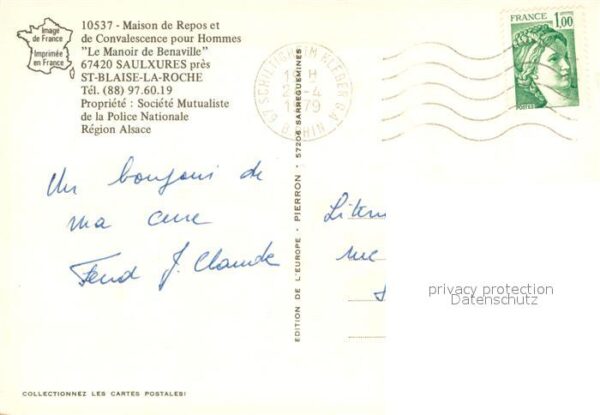 Image
de France
Imprimée
en France
10537 - Maison de Repos et
de Convalescence pour Hommes
"Le Manoir de Benaville"
67420 SAULXURES près
ST-BLAISE-LA-ROCHE
Tél. (88) 97.60.19
Propriété : Société Mutualiste
de la Police Nationale
Région Alsace
67 SCHILTIGHEIM KLEBER G.A.
18 H
2-4
1979
B. RHIN
FRANCE
1,00
POSTES
EDITION DE L'EUROPE - PIERRON - 57206 SARREGUEMINES
Un bonjour de
ma cure
J. Claude
rue
privacy protection
Datenschutz
COLLECTIONNEZ LES CARTES POSTALES!